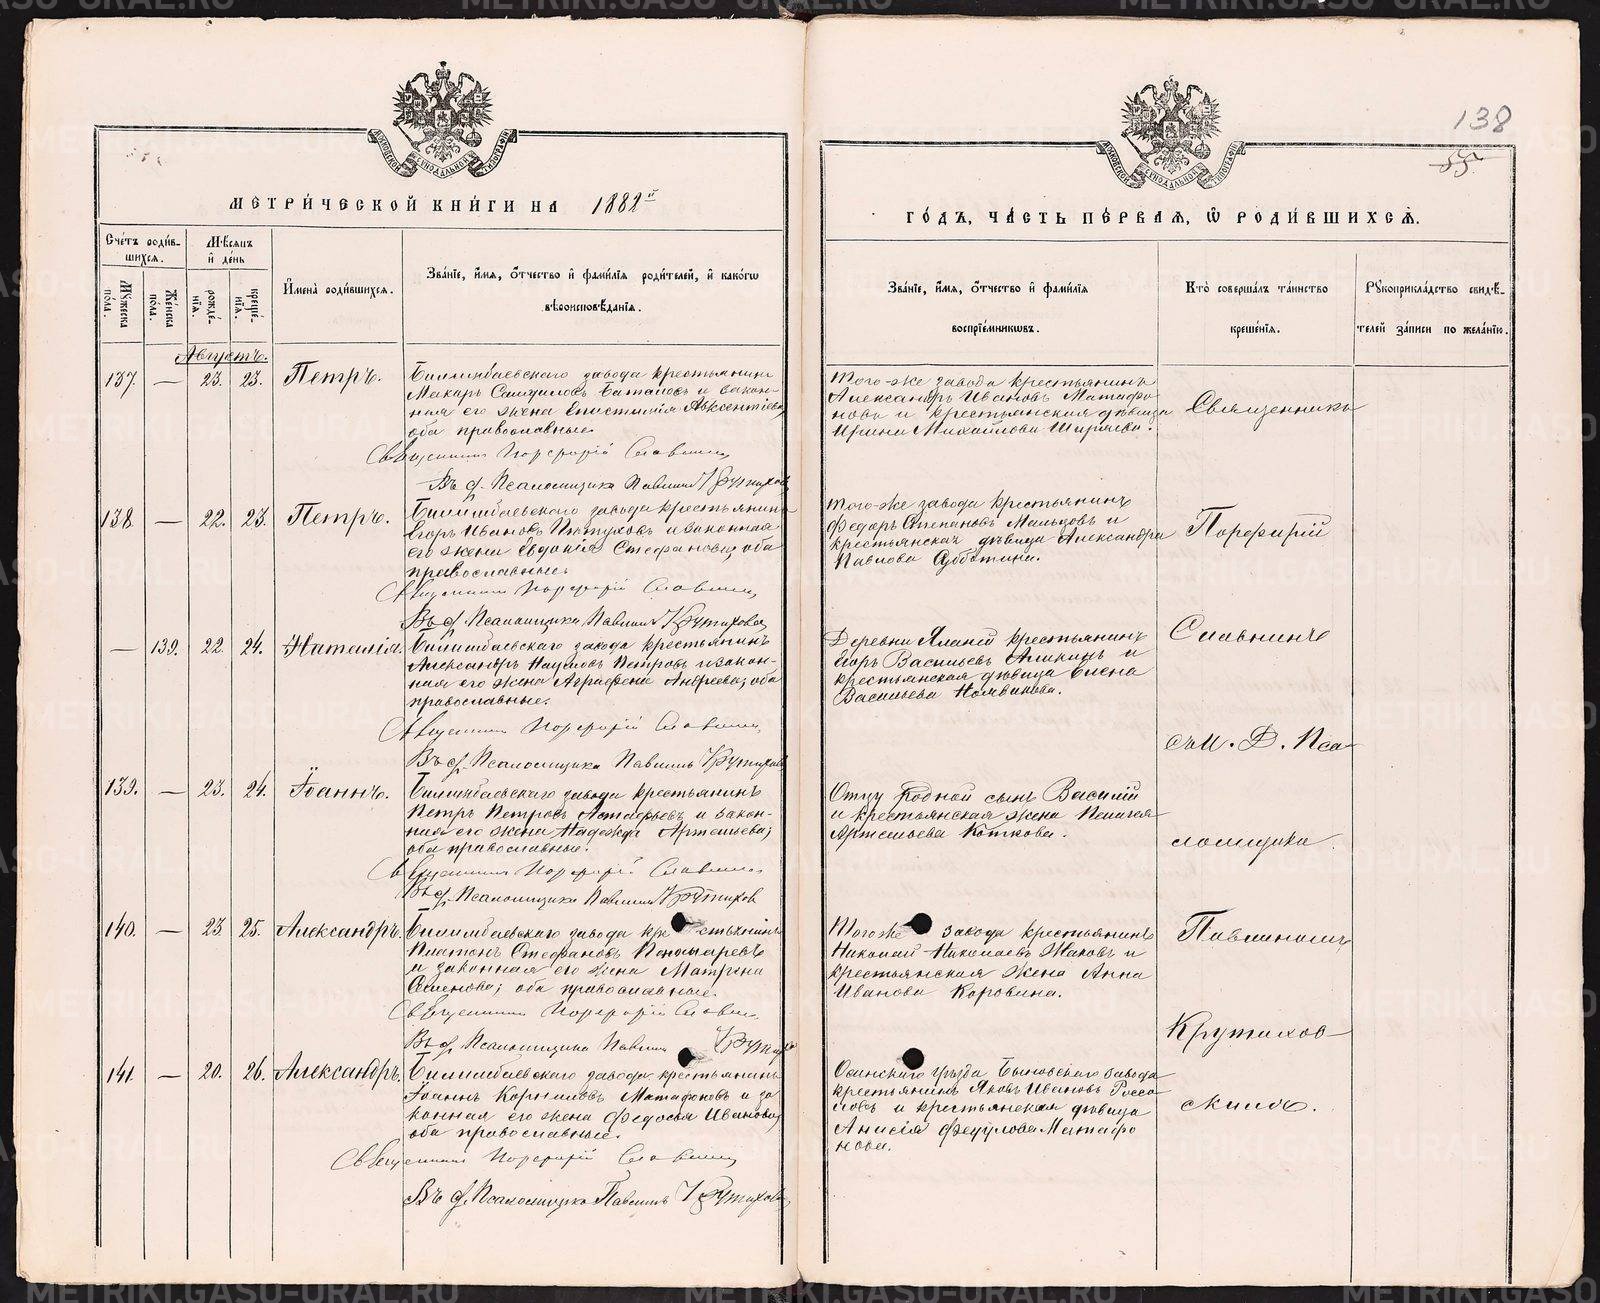 138
55
МЕТРИ́ЧЕСКОЙ КНИ́ГИ НА 1882й
ГО́ДЪ, ЧА́СТЬ ПЕ́РВАЯ, Ѿ РОДИ́ВШИХСЯ.
Сче́тъ роди́вшихся.
Му́жеска по́ла.
Же́нска по́ла.
Мѣ́сяцъ и де́нь
рожде́нїя.
креще́нїя.
И҆мена̀ роди́вшихся.
Зва́нїе, и҆́мя, ѻ҆́тчество и҆ фами́лїя роди́телей, и҆ како́гѡ
вѣроисповѣ́данїя.
Зва́нїе, и҆́мя, ѻ҆́тчество и҆ фами́лїя
воспрїе́мникѡвъ.
Кто̀ соверша́лъ та́инство
креще́нїя.
Рукоприкла́дство свидѣ́-
телей за́писи по жела́нїю.
Августъ.
137. — 23. 23. Петръ.
Билимбаевскаго завода крестьянинъ
Макаръ Самуиловъ Баталовъ и закон-
ная его жена Епистимія Авксентіева,
оба православные.
Священникъ Порфирій Славнинъ
Въ д. Псаломщика Павлинъ Крутиховъ
Того-же завода крестьянинъ
Александръ Ивановъ Матафо
новъ и крестьянская дѣвица
Ирина Михайлова Ширяева.
138. — 22. 23. Петръ.
Билимбаевскаго завода крестьянинъ
Егоръ Ивановъ Пѣтуховъ и законная
его жена Евдокія Стефановна, оба
православные.
Священникъ Порфирій Славнинъ
Въ д. Псаломщика Павлинъ Крутиховъ
Того-же завода крестьянинъ
Федоръ Степановъ Мальцовъ и
крестьянская дѣвица Александра
Павлова Субботина.
— 139. 22. 24. Наталія.
Билимбаевскаго завода крестьянинъ
Александръ Наумовъ Петровъ и закон-
ная его жена Аграфена Андреева, оба
православные.
Священникъ Порфирій Славнинъ
Въ д. Псаломщика Павлинъ Крутиховъ
Деревни крестьянинъ
Егоръ Васильевъ Аликинъ и
крестьянская дѣвица Елена
Васильева
139. — 23. 24. Іоаннъ.
Билимбаевскаго завода крестьянинъ
Петръ Петровъ Астафьевъ и закон-
ная его жена Надежда Артемьева;
оба православные.
Священникъ Порфирій Славнинъ
Въ д. Псаломщика Павлинъ Крутихов
Отцу родной сынъ Василій
и крестьянская жена Пелагея
Артемьева Коткова.
140. — 23 25. Александръ.
Билимбаевскаго завода кр стьянинъ
Платонъ Стефановъ Пономаревъ
и законная его жена Матрена
Семенова; оба православные.
Священникъ Порфирій Славнинъ
Въ д. Псаломщика Павлинъ Крутихов
Того же завода крестьянинъ
Николай Николаевъ Жаковъ и
крестьянская жена Анна
Иванова Коровина.
141. — 20. 26. Александръ.
Билимбаевскаго завода крестьянинъ
Іоаннъ Корниловъ Матафоновъ и за
конная его жена Федосья Иванова,
оба православные.
Священникъ Порфирій Славнинъ
Въ д. Псаломщика Павлинъ Крутиховъ
Осинскаго уѣзда Бымовскаго завода
крестьянинъ Яковъ Ивановъ
и крестьянская дѣвица
Анисія Федулова Матафо
нова.
Священникъ
Порфирій
Славнинъ
съ и. д. Пса-
ломщика
Павлиномъ
Крутихов-
скимъ.
METRIKI.GASO-URAL.RU